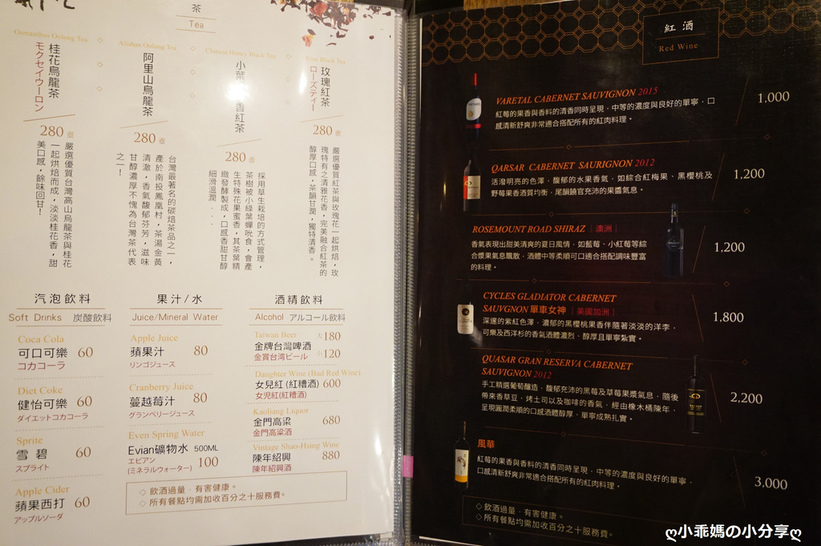 茶
Tea
Osmanthus Oolong Tea
桂花烏龍茶
モクセイウーロン
280 壺
嚴選優質台灣高山烏龍茶與桂花
一起烘焙而成,淡淡桂花香,甜
美口感,餘味回甘!
Alishan Oolong Tea
阿里山烏龍茶
280 壺
台灣最著名的碳焙茶品之一,
產於南投鳳凰村,茶湯金黃
清澈,香氣馥郁芬芳,滋味
甘醇濃厚不愧為台灣茶代表
之一!
小葉
香紅茶
280 壺
採用草生栽培的方式管理,
茶樹被小綠葉蟬吮食,會產
生特殊花果蜜香,其茶葉精
緻發酵製成,口感香甜甘醇
細滑溫潤...
玫瑰紅茶
ローズティー
嚴選優質紅茶與玫瑰花一起烘焙,玫
瑰特有之清雅花香,完美融合紅茶的
醇厚口感,茶韻甘潤,獨特清香。
汽泡飲料
Soft Drinks 炭酸飲料
Coca Cola
可口可樂 60
コカコーラ
Diet Coke
健怡可樂 60
ダイエットコカコーラ
Sprite
雪碧 60
スプライト
Apple Cider
蘋果西打 60
アップルソーダ
果汁/水
Juice/Mineral Water
Apple Juice
蘋果汁 80
リンゴジュース
Cranberry Juice
蔓越莓汁 80
グランベリージュース
Even Spring Water
Evian礦物水 500ML
エビアン 100
(ミネラルウォーター)
酒精飲料
Alcohol アルコール飲料
Taiwan Beer
金牌台灣啤酒 大180
金賞台湾ビール 小120
Daughter Wine (Bad Red Wine)
女兒紅(紅糟酒) 600
女児紅(紅糟酒)
Kaoliang Liquor
金門高粱 680
金門高粱酒
Vintage Shao-Hsing Wine
陳年紹興 880
陳年紹興酒
◇飲酒過量,有害健康。
◇所有餐點均需加收百分之十服務費。
紅酒
Red Wine
VARETAL CABERNET SAUVIGNON 2015
紅莓的果香與香料的清香同時呈現,中等的濃度與良好的單寧,口
感清新舒爽非常適合搭配所有的紅肉料理。
1.000
QARSAR CABERNET SAURIGNON 2012
活潑明亮的色澤,馥郁的水果香氣,如綜合紅梅果、黑櫻桃及
野莓果香酒質均衡,尾韻饒富充沛的果醬氣息。
1.200
ROSEMOUNT ROAD SHIRAZ |澳洲|
香氣表現出甜美清爽的夏日風情,如藍莓、小紅莓等綜
合漿果氣息飄散,酒體中等柔順可口適合搭配調味豐富
的料理。
1.200
CYCLES GLADIATOR CABERNET
SAUVGNON 單車女神 |美國加洲|
深邃的紫紅色澤,濃郁的黑櫻桃果香伴隨著淡淡的洋李,
可樂及西洋杉的香氣酒體濃烈、醇厚且單寧紮實。
1.800
QUASAR GRAN RESERVA CABERNET
SAUVIGNON 2012
手工精選葡萄釀造,馥郁充沛的黑莓及草莓果漿氣息,隨後
帶來香草豆、烤土司以及咖啡的香氣,經由橡木桶陳年,
呈現圓潤柔順的口感酒體醇厚,單寧成熟扎實。
2.200
風華
紅莓的果香與香料的清香同時呈現,中等的濃度與良好的單寧,
口感清新舒爽非常適合搭配所有的紅肉料理。
3.000
◇飲酒過量,有害健康。
◇所有餐點均需加收百分之十服務費。
ღ小乖媽の小分享ღ